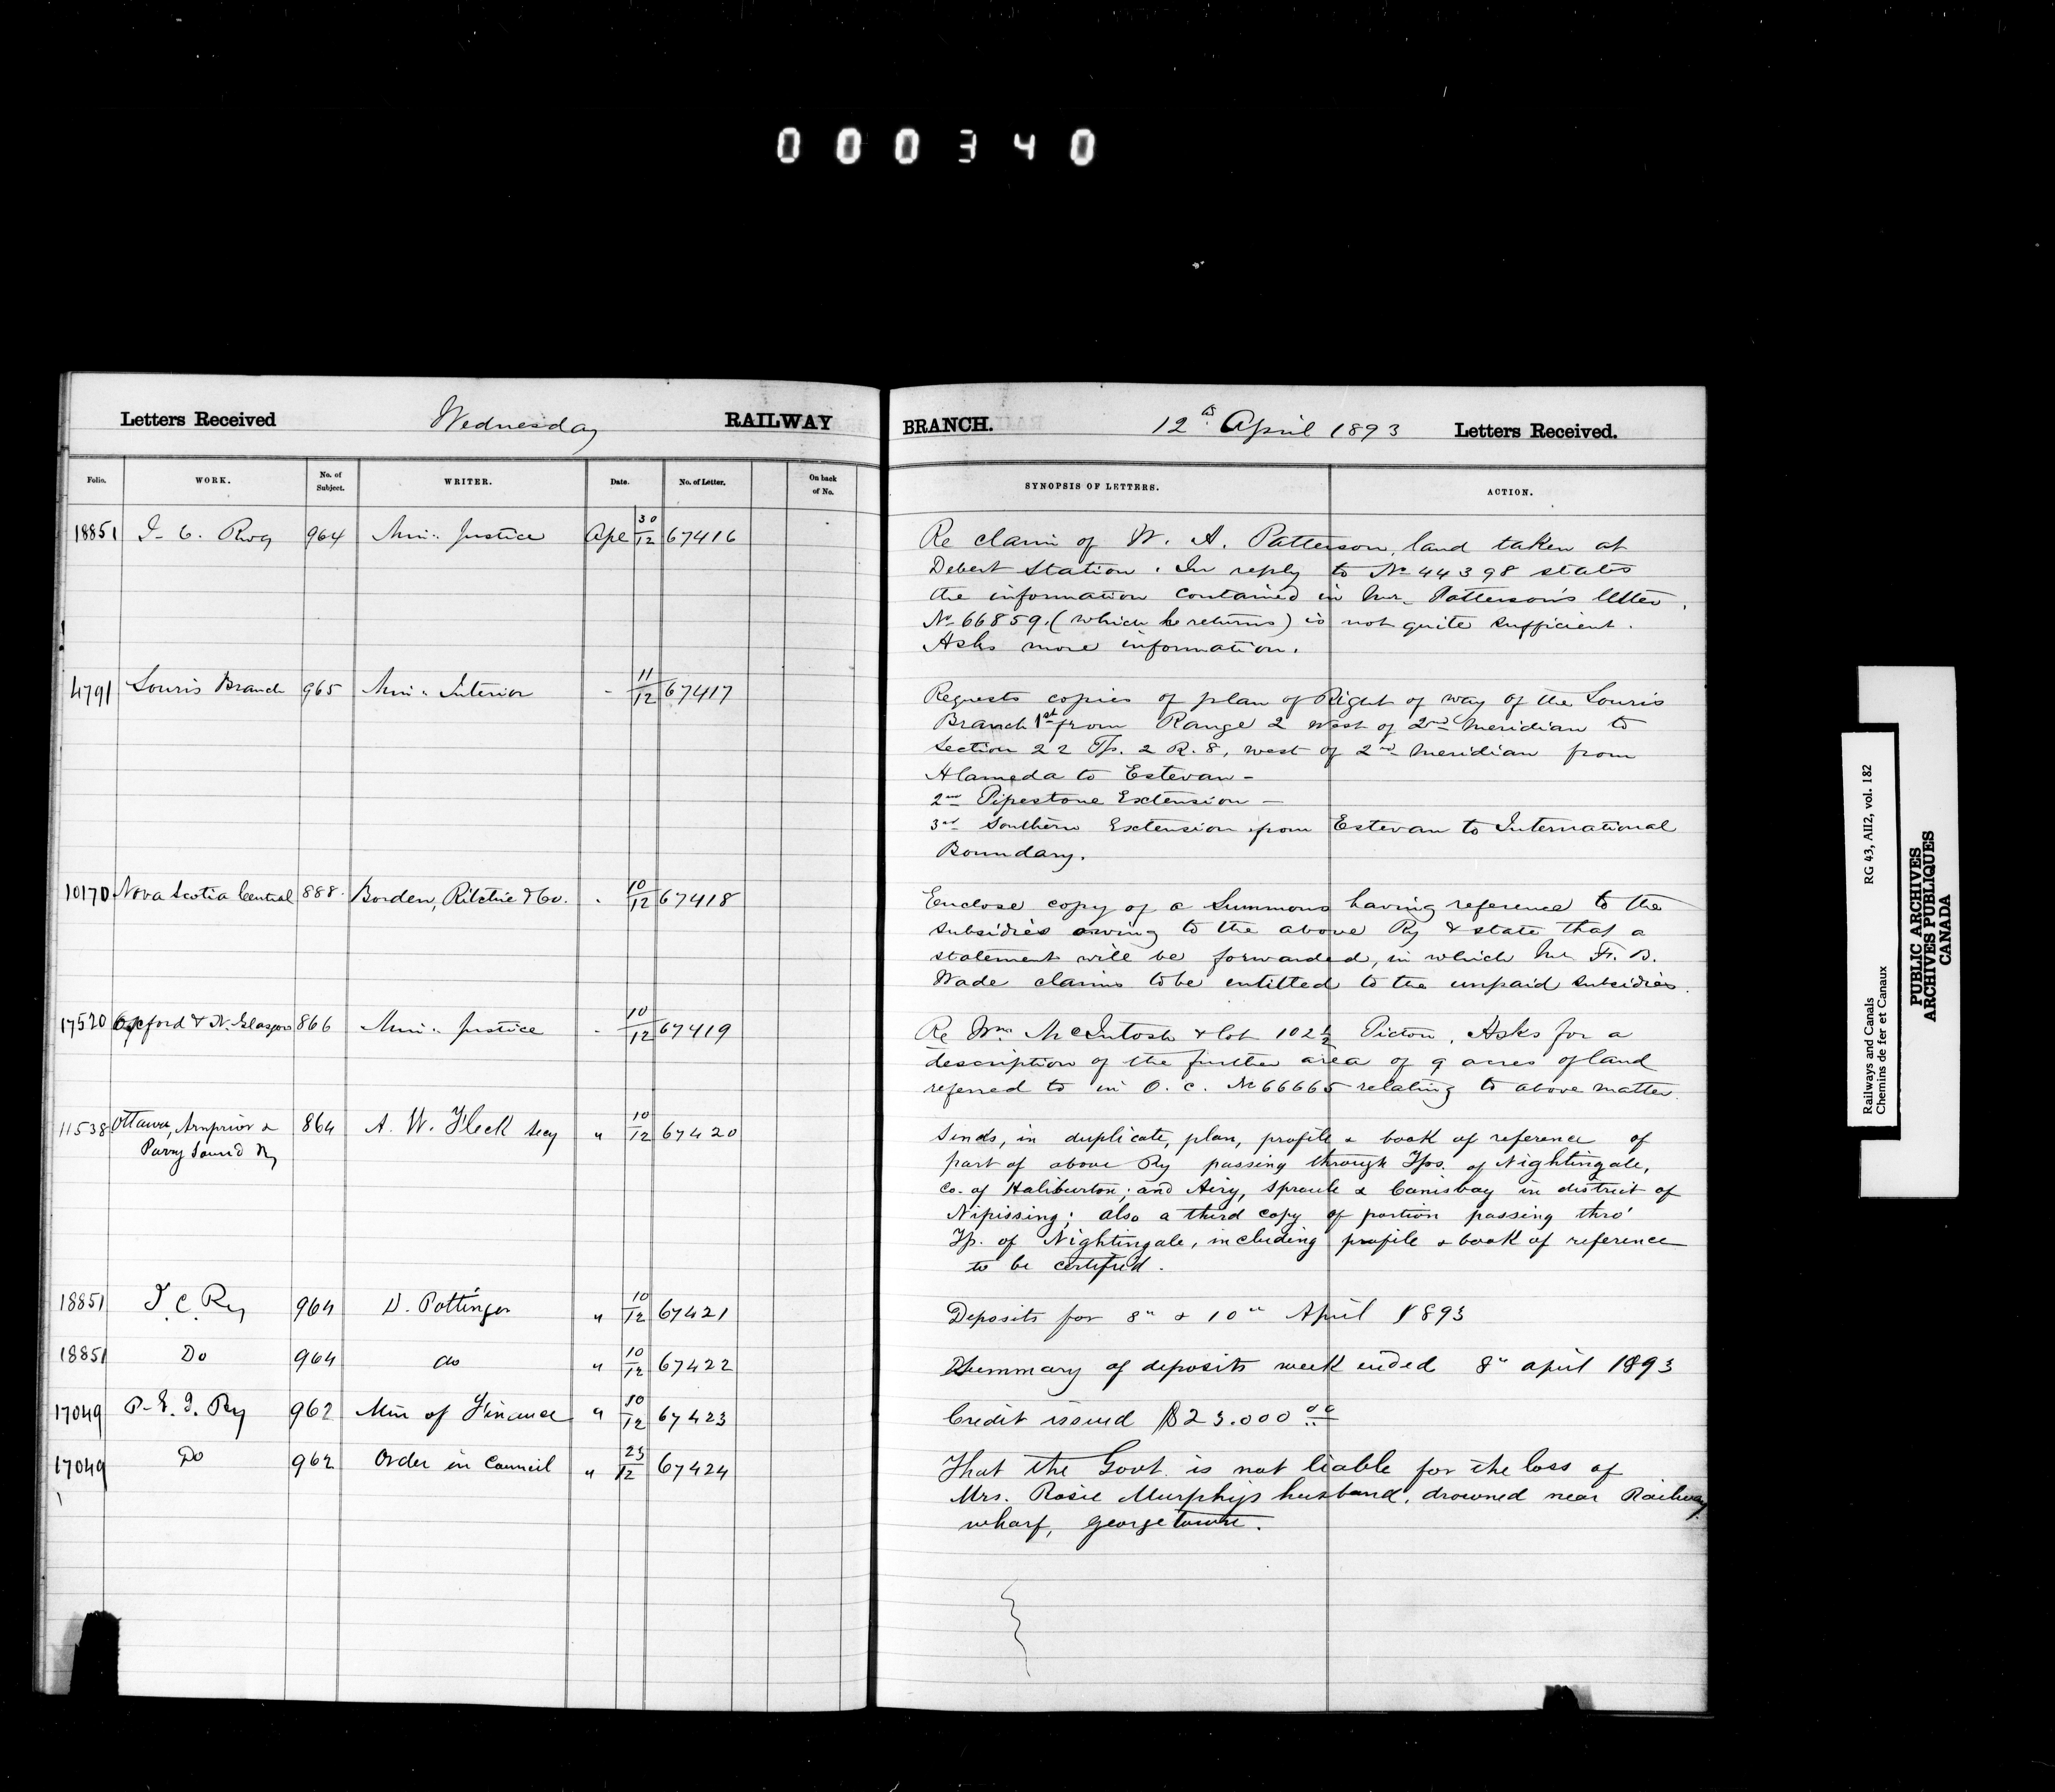 000340
Letters Received Wednesday RAILWAY
BRANCH. 12th April 1893 Letters Received.
Folio. WORK. No. of Subject. WRITER. Date. No. of Letter. On back of No.
SYNOPSIS OF LETTERS. ACTION.
18851 I. C. Rwy 964 Min: Justice Apl 30/12 67416
Re claim of W. A. Patterson, land taken at
Debert Station. In reply to No 44398 states
the information contained in Mr. Patterson's letter,
No 66859. (which he returns) is not quite sufficient.
Asks more information.
4791 Souris Branch 965 Min: Interior " 11/12 67417
Requests copies of plan of Right of way of the Souris
Branch 1st from Range 2 West of 2nd Meridian to
Section 22 Tp. 2 R. 8, west of 2nd Meridian from
Alameda to Estevan -
2nd Pipestone Extension -
3rd Southern Extension from Estevan to International
Boundary.
10170 Nova Scotia Central 888 Borden, Ritchie & Co. " 10/12 67418
Enclose copy of a Summons having reference to the
subsidies owing to the above Ry & state that a
statement will be forwarded, in which Mr F. B.
Wade claims to be entitled to the unpaid subsidies.
17520 Oxford & N. Glasgow 866 Min: Justice " 10/12 67419
Re Wm. McIntosh & lot 102½ Pictou, Asks for a
description of the further area of 9 acres of land
referred to in O. C. No 66665 relating to above matter.
11538 Ottawa, Arnprior & 864 A. W. Fleck Secy " 10/12 67420
Parry Sound Ry
Sends, in duplicate, plan, profile & book of reference of
part of above Ry passing through Tps. of Nightingale,
Co. of Haliburton; and Airy, Sproule & Canisbay in district of
Nipissing; also a third copy of portion passing thro'
Tp. of Nightingale, including profile & book of reference
to be certified.
18851 I. C. Ry 964 D. Pottinger " 10/12 67421
Deposits for 8" & 10" April 1893
18851 Do 964 do " 10/12 67422
Summary of deposits week ended 8" april 1893
17049 P. E. I. Ry 962 Min of Finance " 10/12 67423
Credit issued $23.000 00
17049 Do 962 Order in Council " 23/12 67424
That the Govt. is not liable for the loss of
Mrs. Rosie Murphy's husband, drowned near Railway
wharf, Georgetown.
Railways and Canals RG 43, AII2, vol. 182
Chemins de fer et Canaux
PUBLIC ARCHIVES
ARCHIVES PUBLIQUES
CANADA